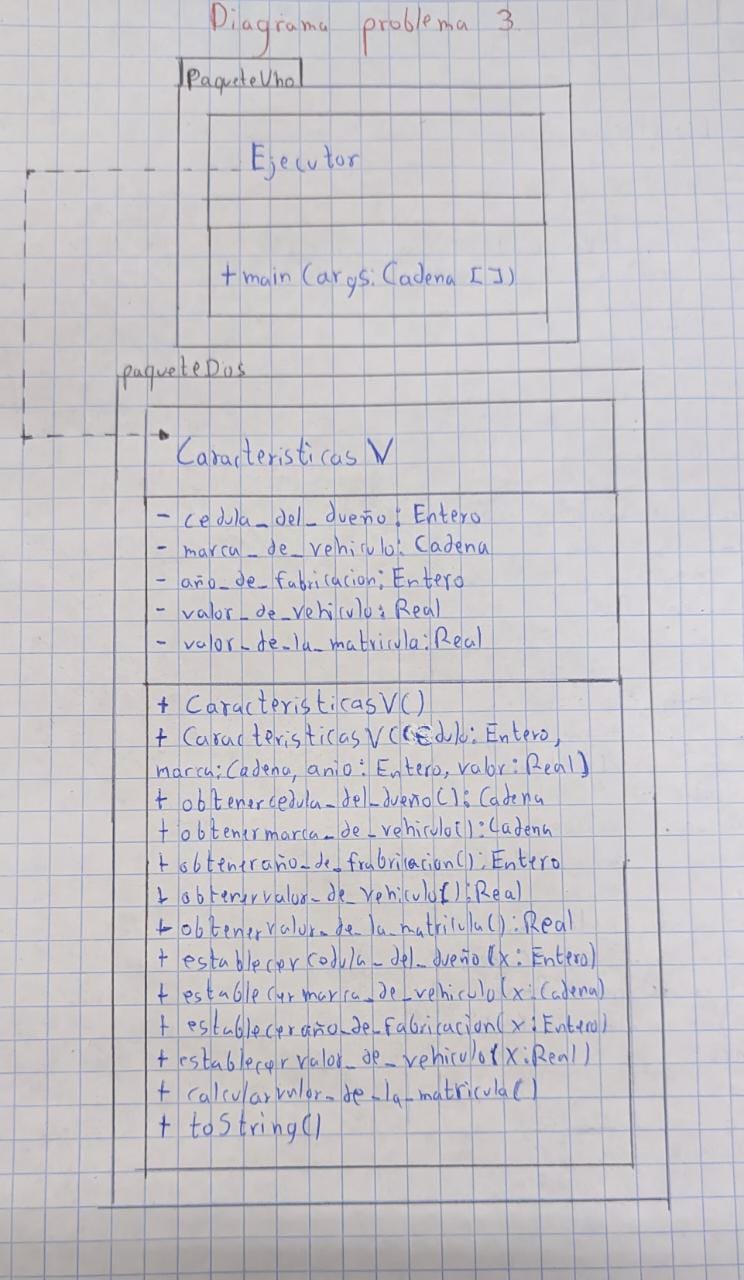 Diagrama problema 3
PaqueteUno
Ejecutor
+ main (args: Cadena [])
paqueteDos
Caracteristicas V
- cedula_del_dueño: Entero
- marca_de_vehiculo: Cadena
- año_de_fabricacion: Entero
- valor_de_vehiculo: Real
- valor_de_la_matricula: Real
+ CaracteristicasV()
+ CaracteristicasV(cedula: Entero,
marca: Cadena, anio: Entero, valor: Real)
+ obtenercedula_del_dueño(): Cadena
+ obtenermarca_de_vehiculo(): Cadena
+ obteneraño_de_frabricacion(): Entero
+ obtenervalor_de_vehiculo(): Real
+ obtenervalor_de_la_matricula(): Real
+ establecercedula_del_dueño(x: Entero)
+ establecermarca_de_vehiculo(x: Cadena)
+ estableceraño_de_fabricacion(x: Entero)
+ establecervalor_de_vehiculo(x: Real)
+ calcularvalor_de_la_matricula()
+ toString()